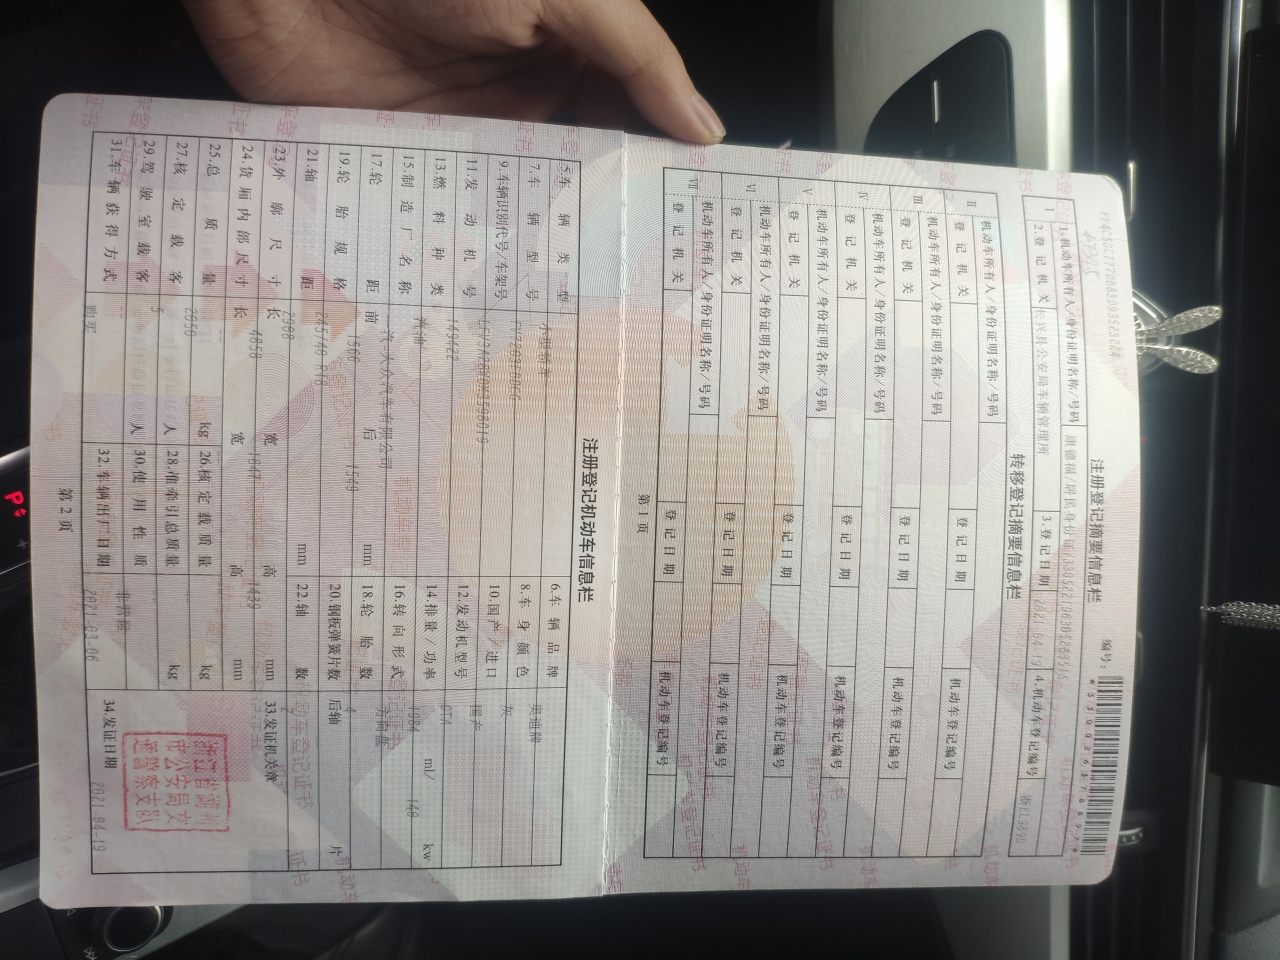 注册登记摘要信息栏
编号:
Ⅰ
1.机动车所有人/身份证明名称/号码 康德福/居民身份证/
2.登记机关 长兴县公安局车辆管理所 3.登记日期 2021-04-19 4.机动车登记编号 浙EL9890
转移登记摘要信息栏
Ⅱ 机动车所有人/身份证明名称/号码
登记机关 登记日期 机动车登记编号
Ⅲ 机动车所有人/身份证明名称/号码
登记机关 登记日期 机动车登记编号
Ⅳ 机动车所有人/身份证明名称/号码
登记机关 登记日期 机动车登记编号
Ⅴ 机动车所有人/身份证明名称/号码
登记机关 登记日期 机动车登记编号
Ⅵ 机动车所有人/身份证明名称/号码
登记机关 登记日期 机动车登记编号
Ⅶ 机动车所有人/身份证明名称/号码
登记机关 登记日期 机动车登记编号
第1页
注册登记机动车信息栏
5.车辆类型 小型轿车 6.车辆品牌 奥迪牌
7.车辆型号 8.车身颜色 灰
9.车辆识别代号/车架号 10.国产/进口 国产
11.发动机号 149422 12.发动机型号 DTA
13.燃料种类 汽油 14.排量/功率 1984 ml/ 140 kw
15.制造厂名称 一汽-大众汽车有限公司 16.转向形式 方向盘
17.轮距 前 1566 后 1549 mm 18.轮胎数 4
19.轮胎规格 245/40 R18 20.钢板弹簧片数 后轴 片
21.轴距 2908 mm 22.轴数 2
23.外廓尺寸 长 4858 宽 1847 高 1439 mm 33.发证机关章
24.货厢内部尺寸 长 宽 高 mm
25.总质量 kg 26.核定载质量 kg
27.核定载客 5 人 28.准牵引总质量 kg
29.驾驶室载客 人 30.使用性质 非营运
31.车辆获得方式 购买 32.车辆出厂日期 2021-03-06 34.发证日期 2021-04-19
浙江省湖州
市公安局交
通警察支队
第2页
P